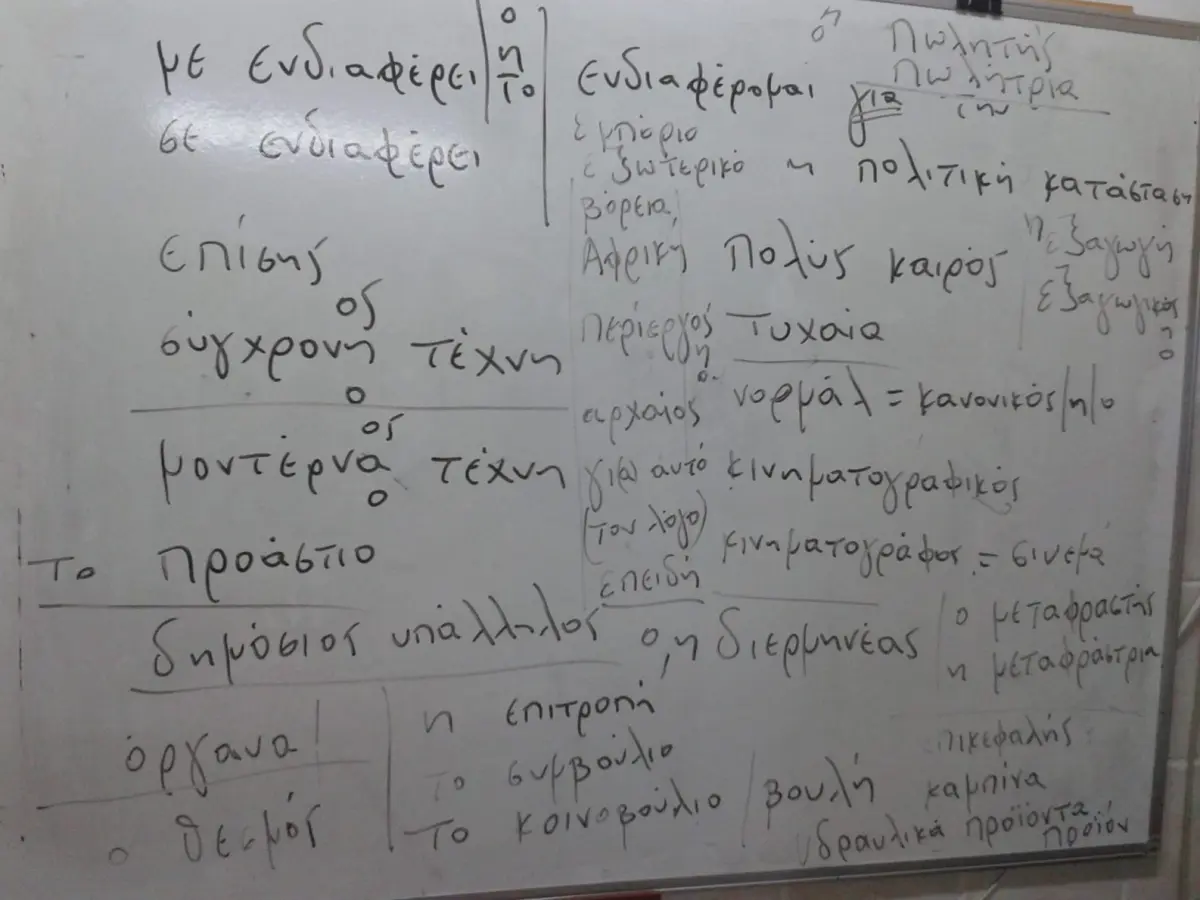 με ενδιαφέρει ο η το
σε ενδιαφέρει
επίσης
ος
σύγχρονη τέχνη
ο
ος
μοντέρνα τέχνη
ο
το προάστιο
ενδιαφέρομαι για την
ο η πωλητής
πωλήτρια
εμπόριο
εξωτερικό η πολιτική κατάσταση
βόρεια
Αφρική πολύς καιρός
η εξαγωγή
εξαγωγικός
η
ο
περίεργος τυχαία
η
ο
αρχαίος νορμάλ = κανονικός/η/ο
για αυτό κινηματογραφικός
(τον λόγο) κινηματογράφος = σινεμά
επειδή
δημόσιος υπάλληλος ο, η διερμηνέας
ο μεταφραστής
η μεταφράστρια
όργανα
ο θεσμός
η επιτροπή
το συμβούλιο
το κοινοβούλιο / βουλή
καμπίνα
υδραυλικά προϊόντα
προϊόν